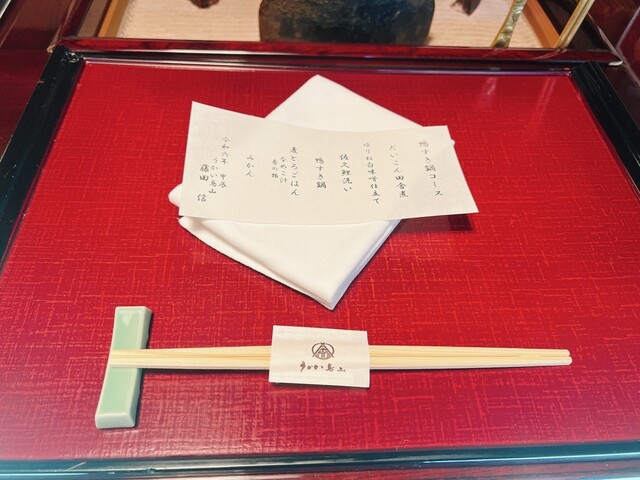 鴨すき鍋コース
だいこん田舎煮
ゆりね白味噌仕立て
佐久鯉洗い
鴨すき鍋
麦とろごはん
なめこ汁
香の物
みかん
令和六年 甲辰
うかい鳥山
藤田 信
うかい鳥山